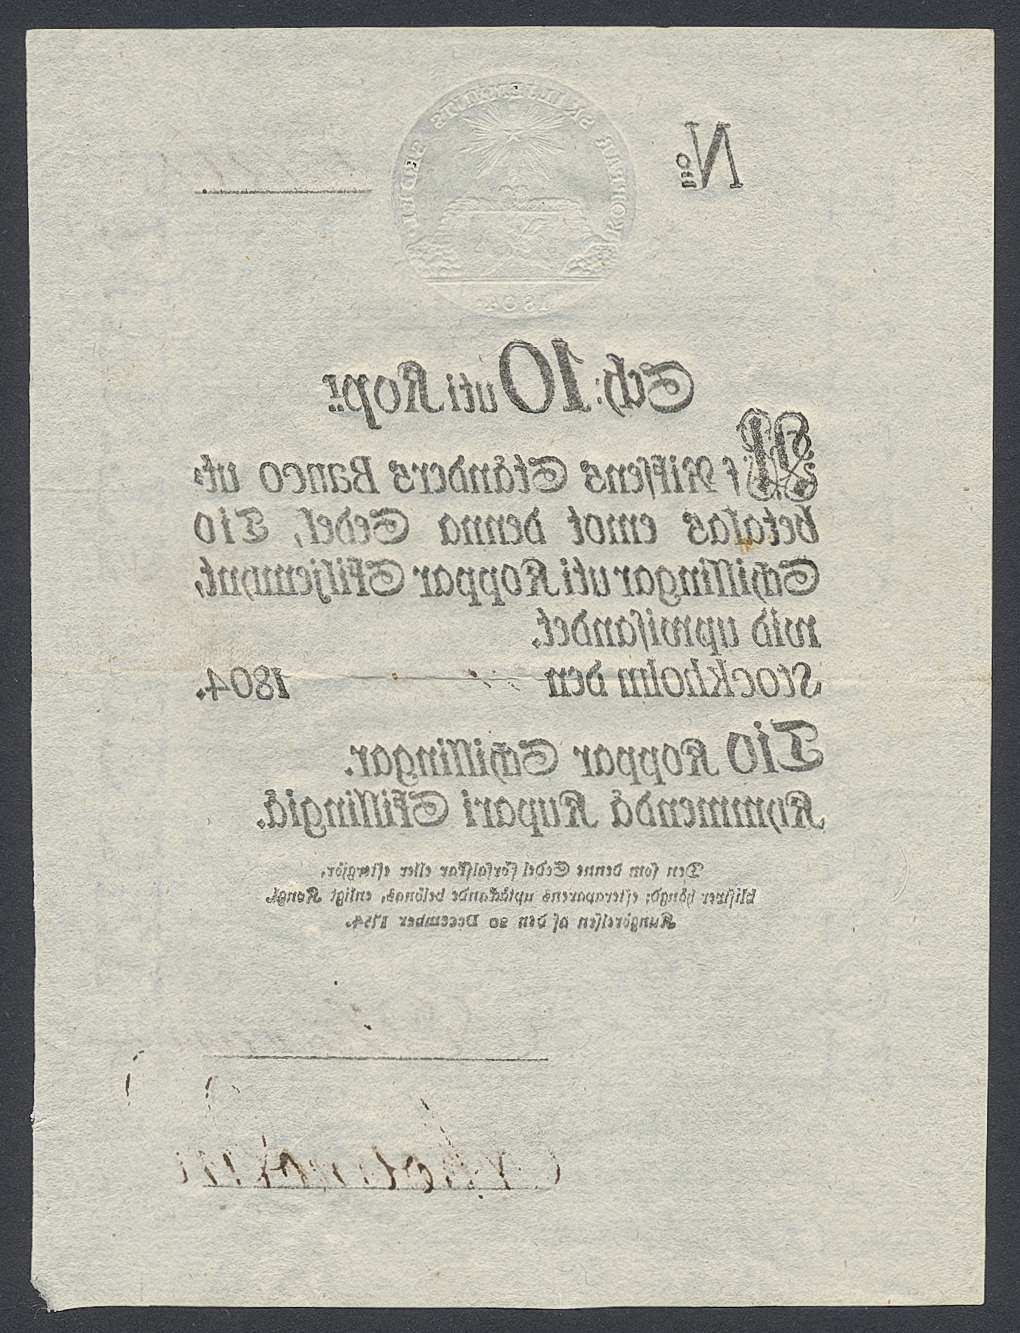 TIE SEDR SKILIEMYNTS KOPPAR
1804
No
Sch: 10 uti Kopr
Uti Riksens Ständers Banco ut-
betalas emot denna Sedel, Tio
Schillingar uti Koppar Skiljemynt,
wid upwisandet.
Stockholm den 1804.
Tio Koppar Schillingar.
Kymmendå Kupari Skillingiä.
Den som denne Sedel förfalskar eller eftergiör,
blifwer hängd; efterraparens uptäckande belönas, enligt Kongl.
Kungörelsen af den 20 December 1754.